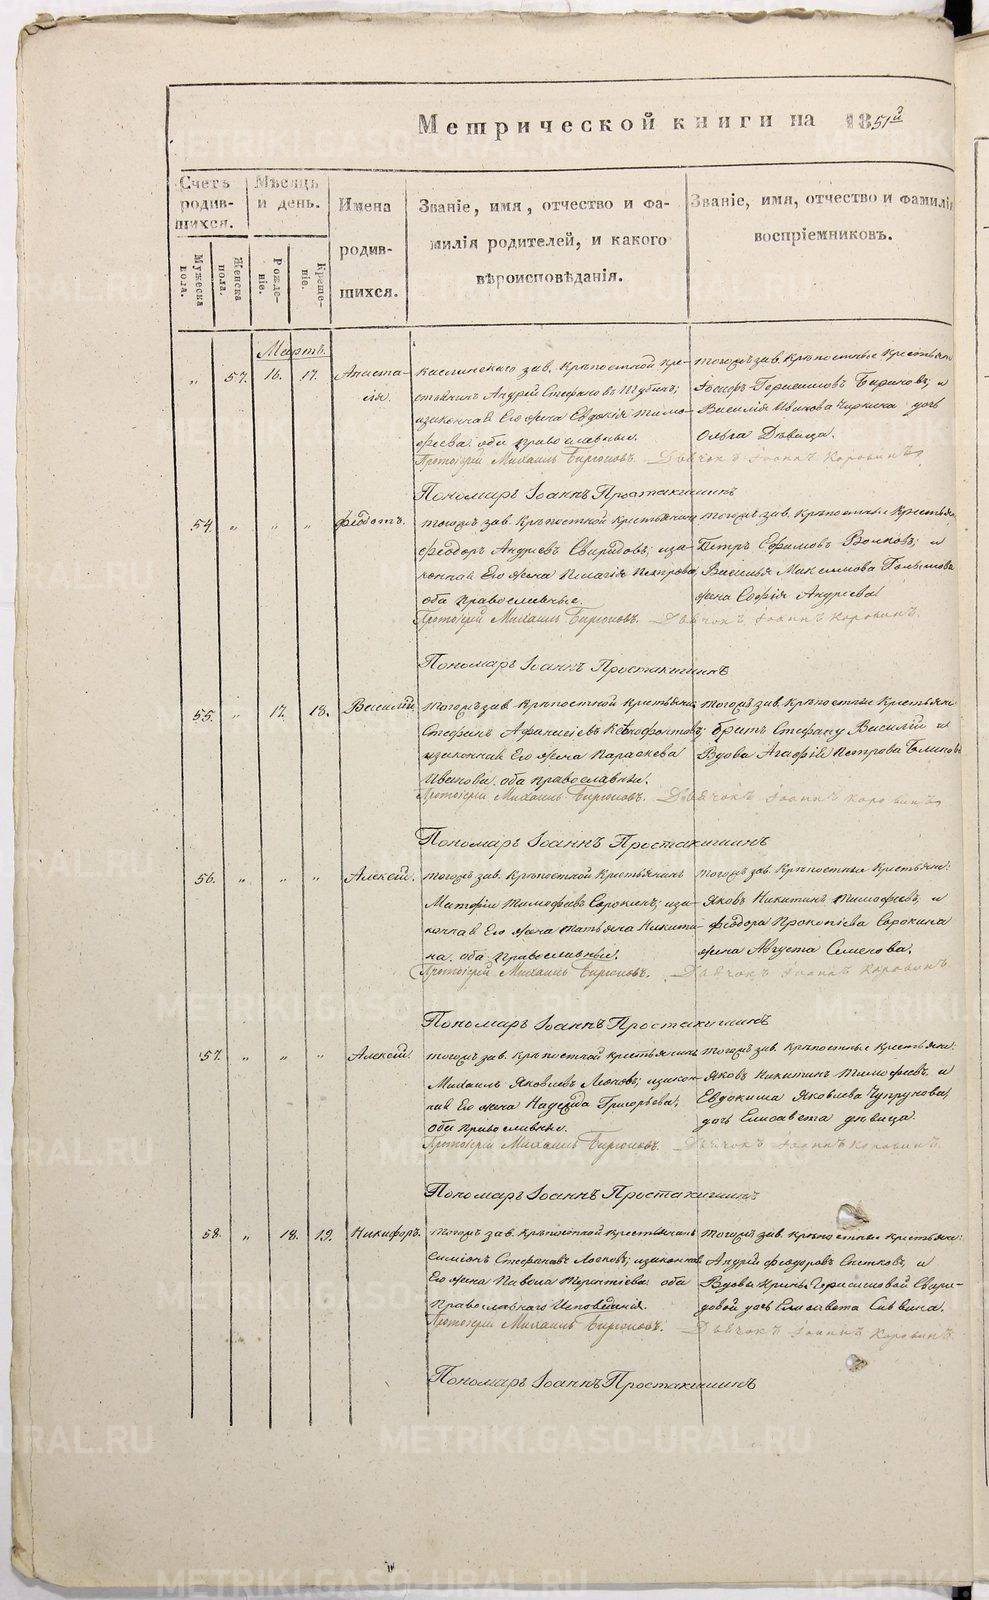 Метрической книги на 1851й
Счетъ родив-шихся.
Мѣсяцъ и день.
Имена родив-шихся.
Званіе, имя, отчество и фа-
милія родителей, и какого
вѣроисповѣданія.
Званіе, имя, отчество и фамилія
воспріемниковъ.
Мужеска пола.
Женска пола.
Рожде-ніе.
Креще-ніе.
Мартъ.
„ 57. 16. 17. Анаста-
сія.
Каслинскаго зав. Крѣпостной Кре-
стьянинъ Андрей Стефановъ
изаконная Его жена Евдокія Тимо-
феева. оба православные.
Тогожъ зав. Крѣпостные Крестьян
Іосифъ Герасимовъ Бириковъ; и
Василія Иванова Чиркина дочь
Ольга Дѣвица.
Протоіерей Михаилъ Бирюковъ. Дьячокъ Іоаннъ Коровинъ
Пономаръ Іоаннъ Простакишинъ
54 „ „ „ Феодотъ.
Тогожъ зав. Крѣпостной Крестьянинъ
Феодоръ Андреевъ Свиридовъ; иза-
конная Его жена Пелагія Петрова,
оба православные.
Тогожъ зав. Крѣпостные Крестья
Петръ Ефимовъ Волковъ; и
Василья Максимова
жена Софія Андреева
Протоіерей Михаилъ Бирюковъ. Дьячокъ Іоаннъ Коровинъ.
Пономаръ Іоаннъ Простакишинъ
55. „ 17. 18. Василій
Тогожъ зав. Крѣпостной Крестьяни
Стефанъ Афанасіевъ Ксенофонтовъ;
изаконная Его жена Параскева
Иванова. оба православные.
Тогожъ зав. Крѣпостные Крестьяни
братъ Стефану Василій и
Вдова Агафія Петрова
Протоіерей Михаилъ Бирюковъ. Дьячокъ Іоаннъ Коровинъ
Пономаръ Іоаннъ Простакишинъ
56. „ „ „ Алексій.
Тогожъ зав. Крѣпостной Крестьянинъ
Матфій Тимофеевъ Сорокинъ; иза-
конная Его жена Татьяна Никити-
на. оба православные.
Тогожъ зав. Крѣпостные Крестьяни:
Яковъ Никитинъ Тимофеевъ, и
Феодора Прокопіева Сорокина
жена Августа Семенова.
Протоіерей Михаилъ Бирюковъ. Дьячокъ Іоаннъ Коровинъ
Пономаръ Іоаннъ Простакишинъ
57. „ „ „ Алексій.
Тогожъ зав. Крѣпостной Крестьянинъ
Михаилъ Яковлевъ Леоновъ; изакон-
ная Его жена Надежда Григорьева.
оба православные.
Тогожъ зав. Крѣпостные Крестьяни:
Яковъ Никитинъ Тимофеевъ, и
Евдокима Яковлева Чупрунова,
дочь Елисавета дѣвица.
Протоіерей Михаилъ Бирюковъ. Дьячокъ Іоаннъ Коровинъ.
Пономаръ Іоаннъ Простакишинъ
58. „ 18. 19. Никифоръ.
Тогожъ зав. Крѣпостной Крестьянинъ
Симіонъ Стефановъ Лосковъ; изаконная
Его жена Павола Терентіева. оба
Православнаго Исповѣданія.
Тогожъ зав. Крѣпостные Крестьяни:
Андрей Феодоровъ Снетковъ, и
Вдовы Ирины Герасимовой Свири-
довой дочь Елисавета Саввина.
Протоіерей Михаилъ Бирюковъ. Дьячокъ Іоаннъ Коровинъ.
Пономаръ Іоаннъ Простакишинъ
METRIKI.GASO-URAL.RU